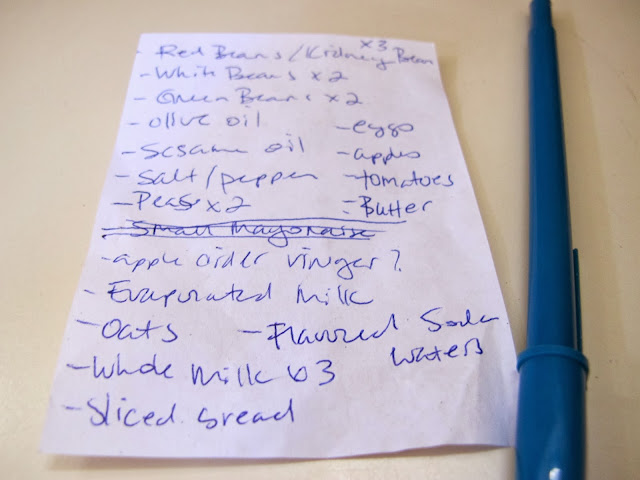 x3
- Red Beans/Kidney Bean
- White Beans x2
- Green Beans x2
- Olive oil
- eggs
- Sesame oil
- apples
- Salt/pepper
- tomatoes
- Peas x2
- Butter
- Small Mayonaise
- apple cider vinger?
- Evaporated Milk
- Oats
- Flavored Soda
waters
- Whole Milk x3
- Sliced bread